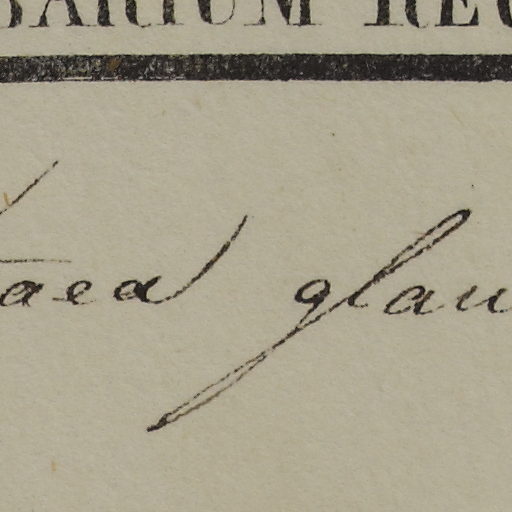 BARIUM REG
taea glau